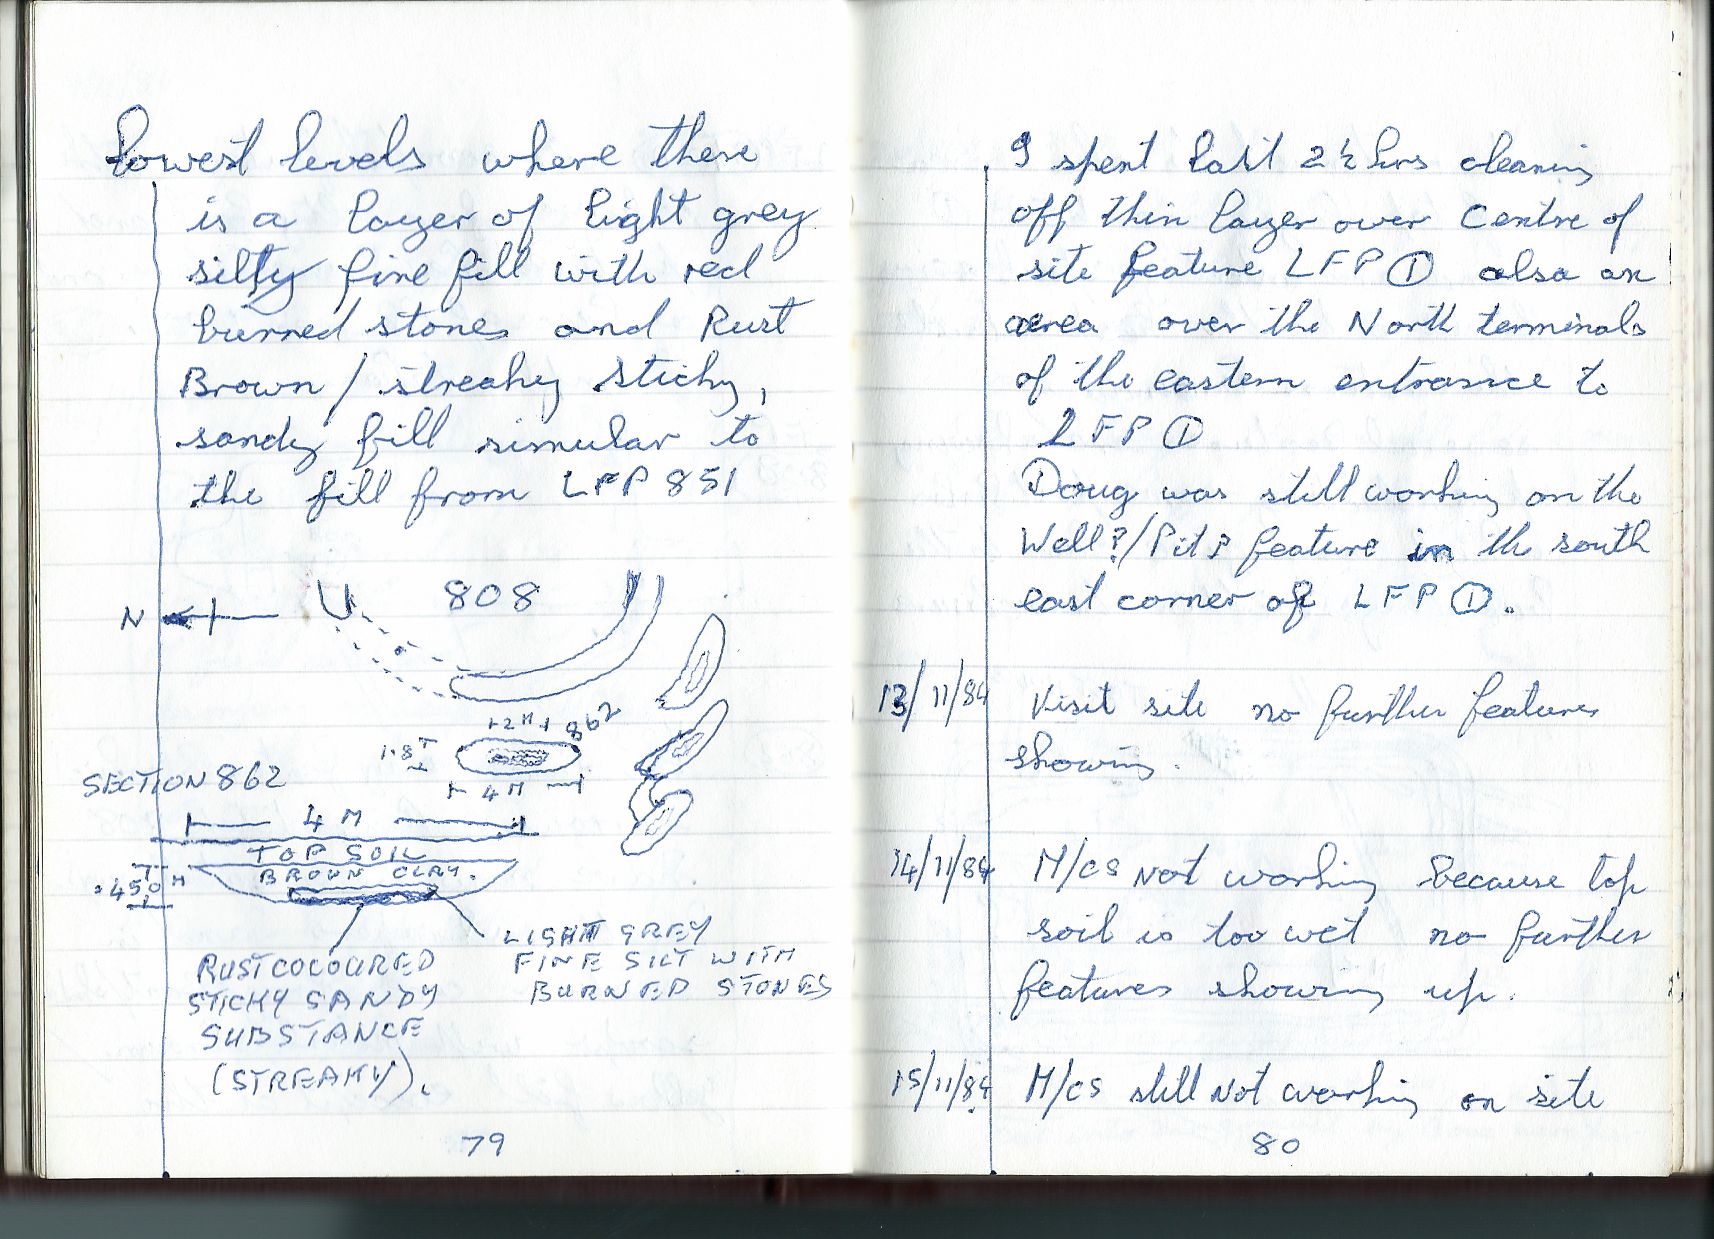 lowest levels where there
is a layer of light grey
silty fine fill with red
burned stones and Rust
Brown / streaky sticky,
sandy fill simular to
the fill from LFP 851
808
N
2M
862
1.8
4M
SECTION 862
4 M
TOP SOIL
BROWN CLAY.
.450M
LIGHT GREY
FINE SILT WITH
BURNED STONES
RUSTCOLOURED
STICKY SANDY
SUBSTANCE
(STREAKY).
79
I spent last 2½ hrs cleaning
off thin layer over Centre of
site feature LFP ① also an
area over the North terminals
of the eastern entrance to
LFP ①
Doug was still working on the
Well?/Pit? feature in th south
east corner of LFP ①.
13/11/84 Visit site no further features
showing.
14/11/84 M/cs Not working because top
soil is too wet no further
features showing up.
15/11/84 M/cs still Not working on site
80